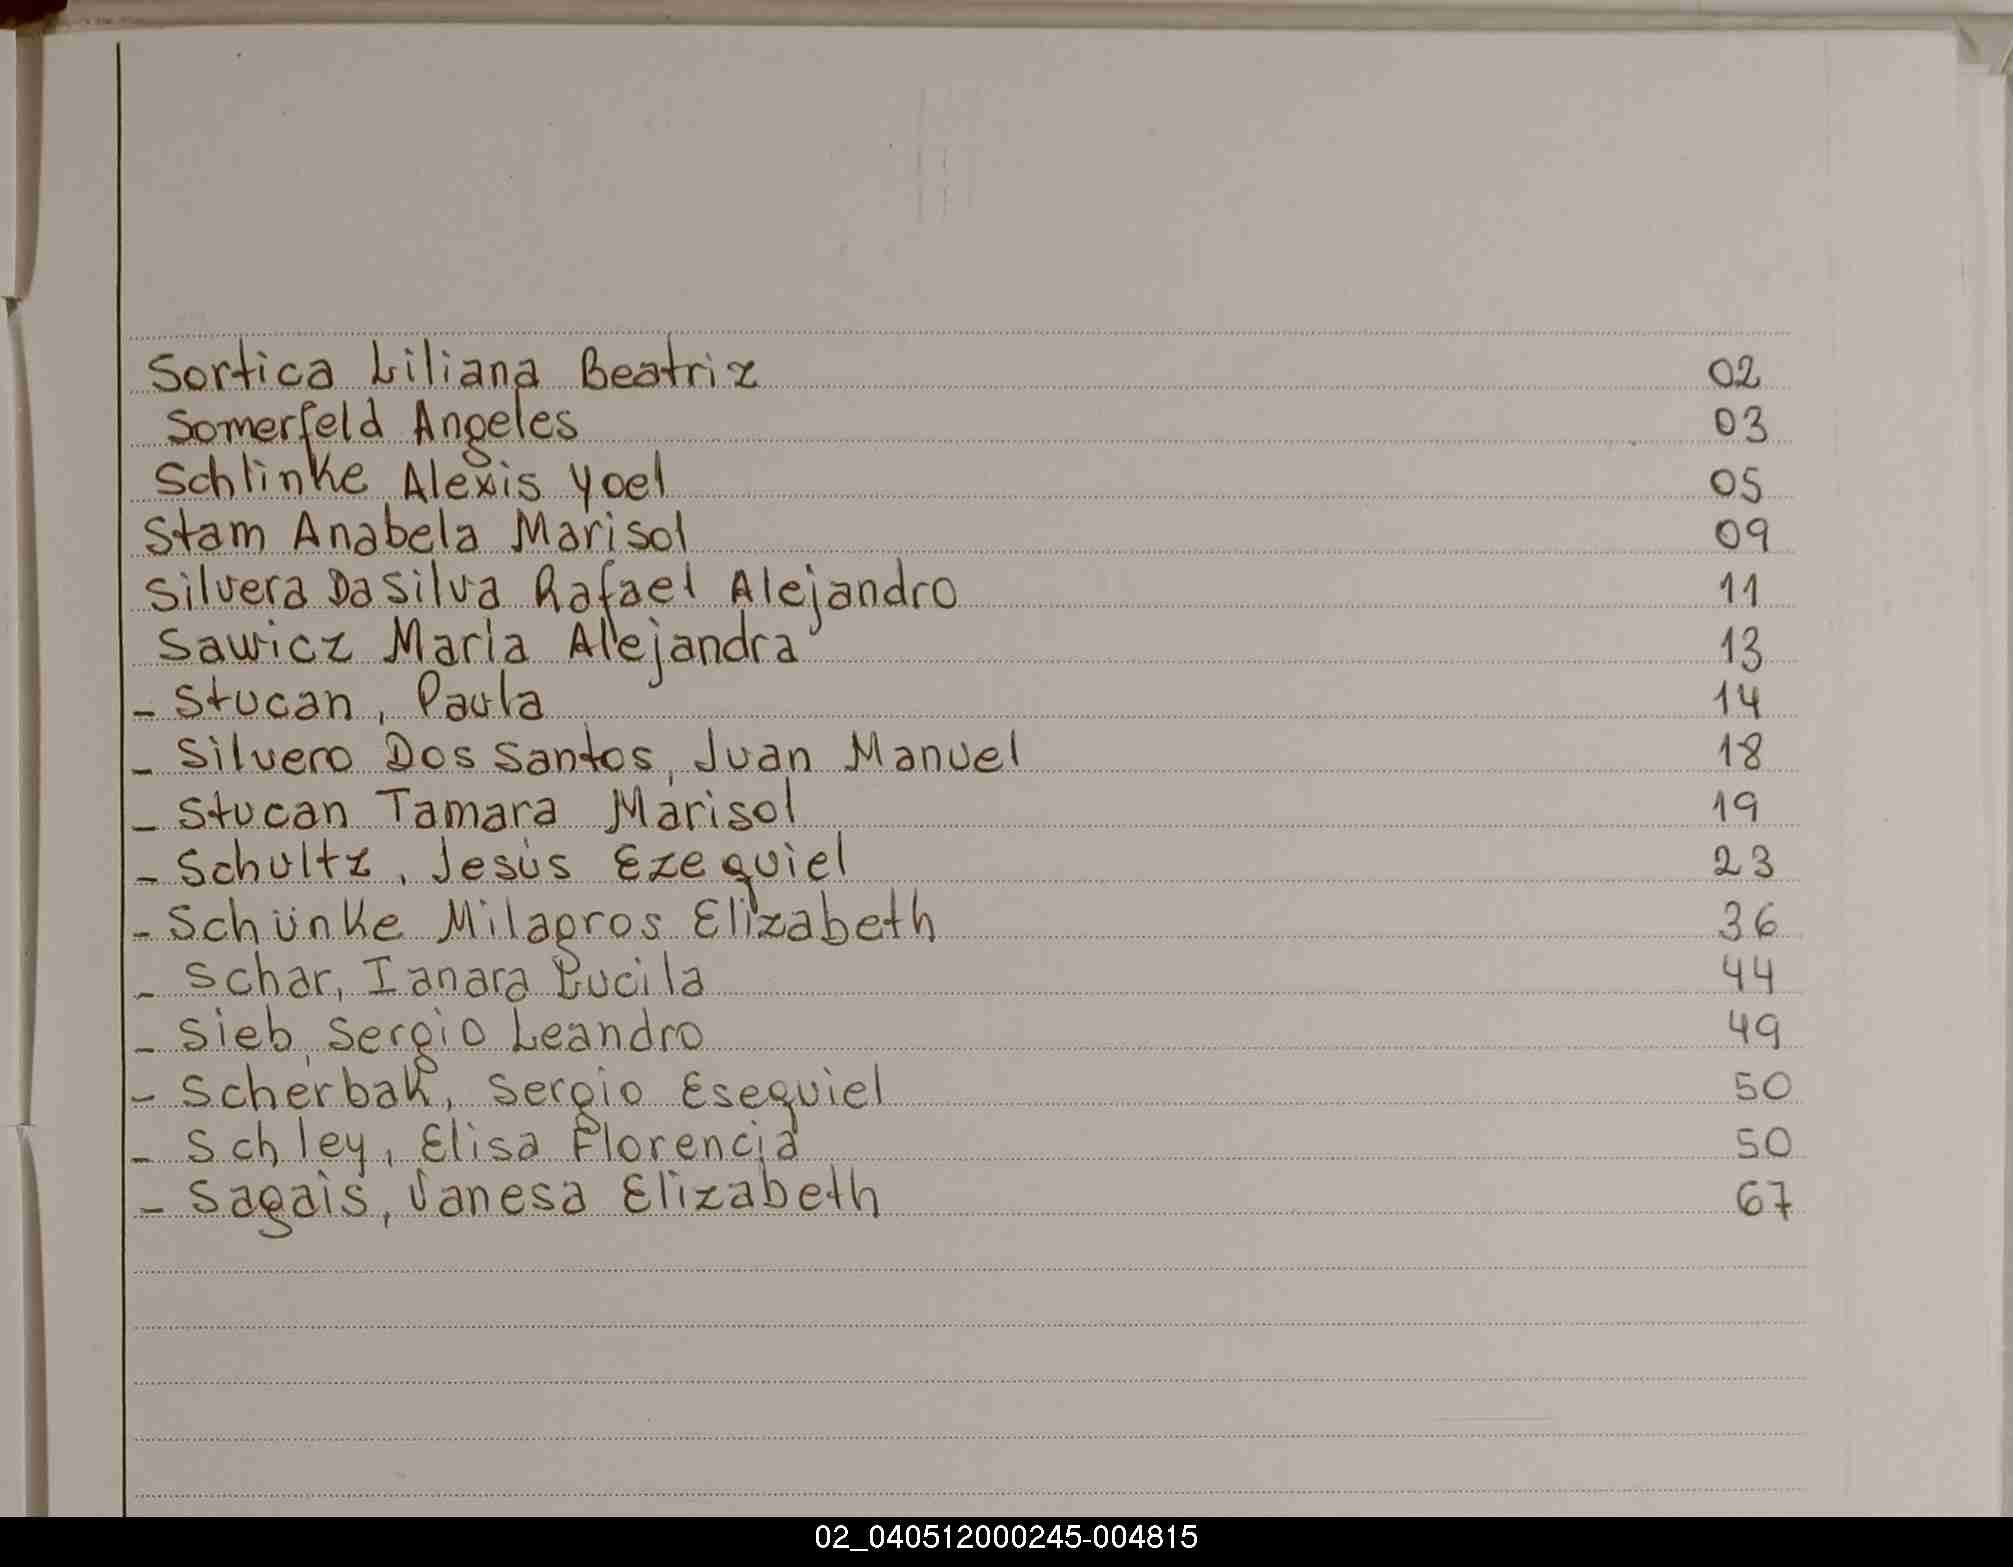 Sortica Liliana Beatriz 02
Somerfeld Angeles 03
Schlinke Alexis Yoel 05
Stam Anabela Marisol 09
Silvera Da Silva Rafael Alejandro 11
Sawicz Maria Alejandra 13
- Stucan, Paula 14
- Silvero Dos Santos, Juan Manuel 18
- Stucan Tamara Marisol 19
- Schultz, Jesús Ezequiel 23
- Schünke Milagros Elizabeth 36
- Schar, Ianara Lucila 44
- Sieb, Sergio Leandro 49
- Scherbak, Sergio Esequiel 50
- Schley, Elisa Florencia 50
- Sagais, Vanesa Elizabeth 67
02_040512000245-004815